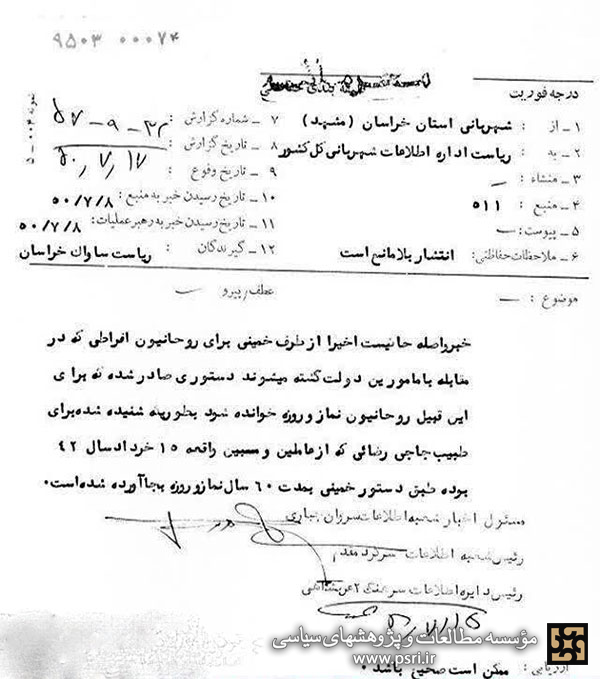 ۹۵۰۳ ۰۰۰۷۴
درجه فوریت
۱ـ از : شهربانی استان خراسان (مشهد)
۲ـ به : ریاست اداره اطلاعات شهربانی کل کشور
۳ـ منشاء : ـ
۴ـ منبع : ۵۱۱
۵ـ پیوست : ـ
۶ـ ملاحظات حفاظتی: انتشار بلامانع است
۷ ـ شماره گزارش :
۸ ـ تاریخ گزارش : ۵۰,۷,۱۷
۹ ـ تاریخ وقوع :
۱۰ ـ تاریخ رسیدن خبر به منبع : ۵۰/۷/۸
۱۱ ـ تاریخ رسیدن خبر به رهبر عملیات: ۵۰/۷/۸
۱۲ ـ گیرندگان : ریاست ساواک خراسان
موضوع : ـ
عطف / پیرو ـ
خبر واصله حاکیست اخیرا از طرف خمینی برای روحانیون افراطی که در
مقابله با مامورین دولت کشته میشوند دستوری صادر شده که برای
این قبیل روحانیون نماز و روزه خوانده شود بطوریکه شنیده شده برای
طیب حاجی رضائی که از عاملین و مسببین واقعه ۱۵ خرداد سال ۴۲
بوده طبق دستور خمینی بمدت ۶۰ سال نماز و روزه بجا آورده شده است.
مسئول اخبار شعبه اطلاعات
رئیس شعبه اطلاعات سرگرد مقدم
رئیس دایره اطلاعات سرهنگ ۲
۵۰,۷,۱۵
ارزیابی : ممکن است صحیح باشد .
مؤسسه مطالعات و پژوهشهای سیاسی
www.psri.ir